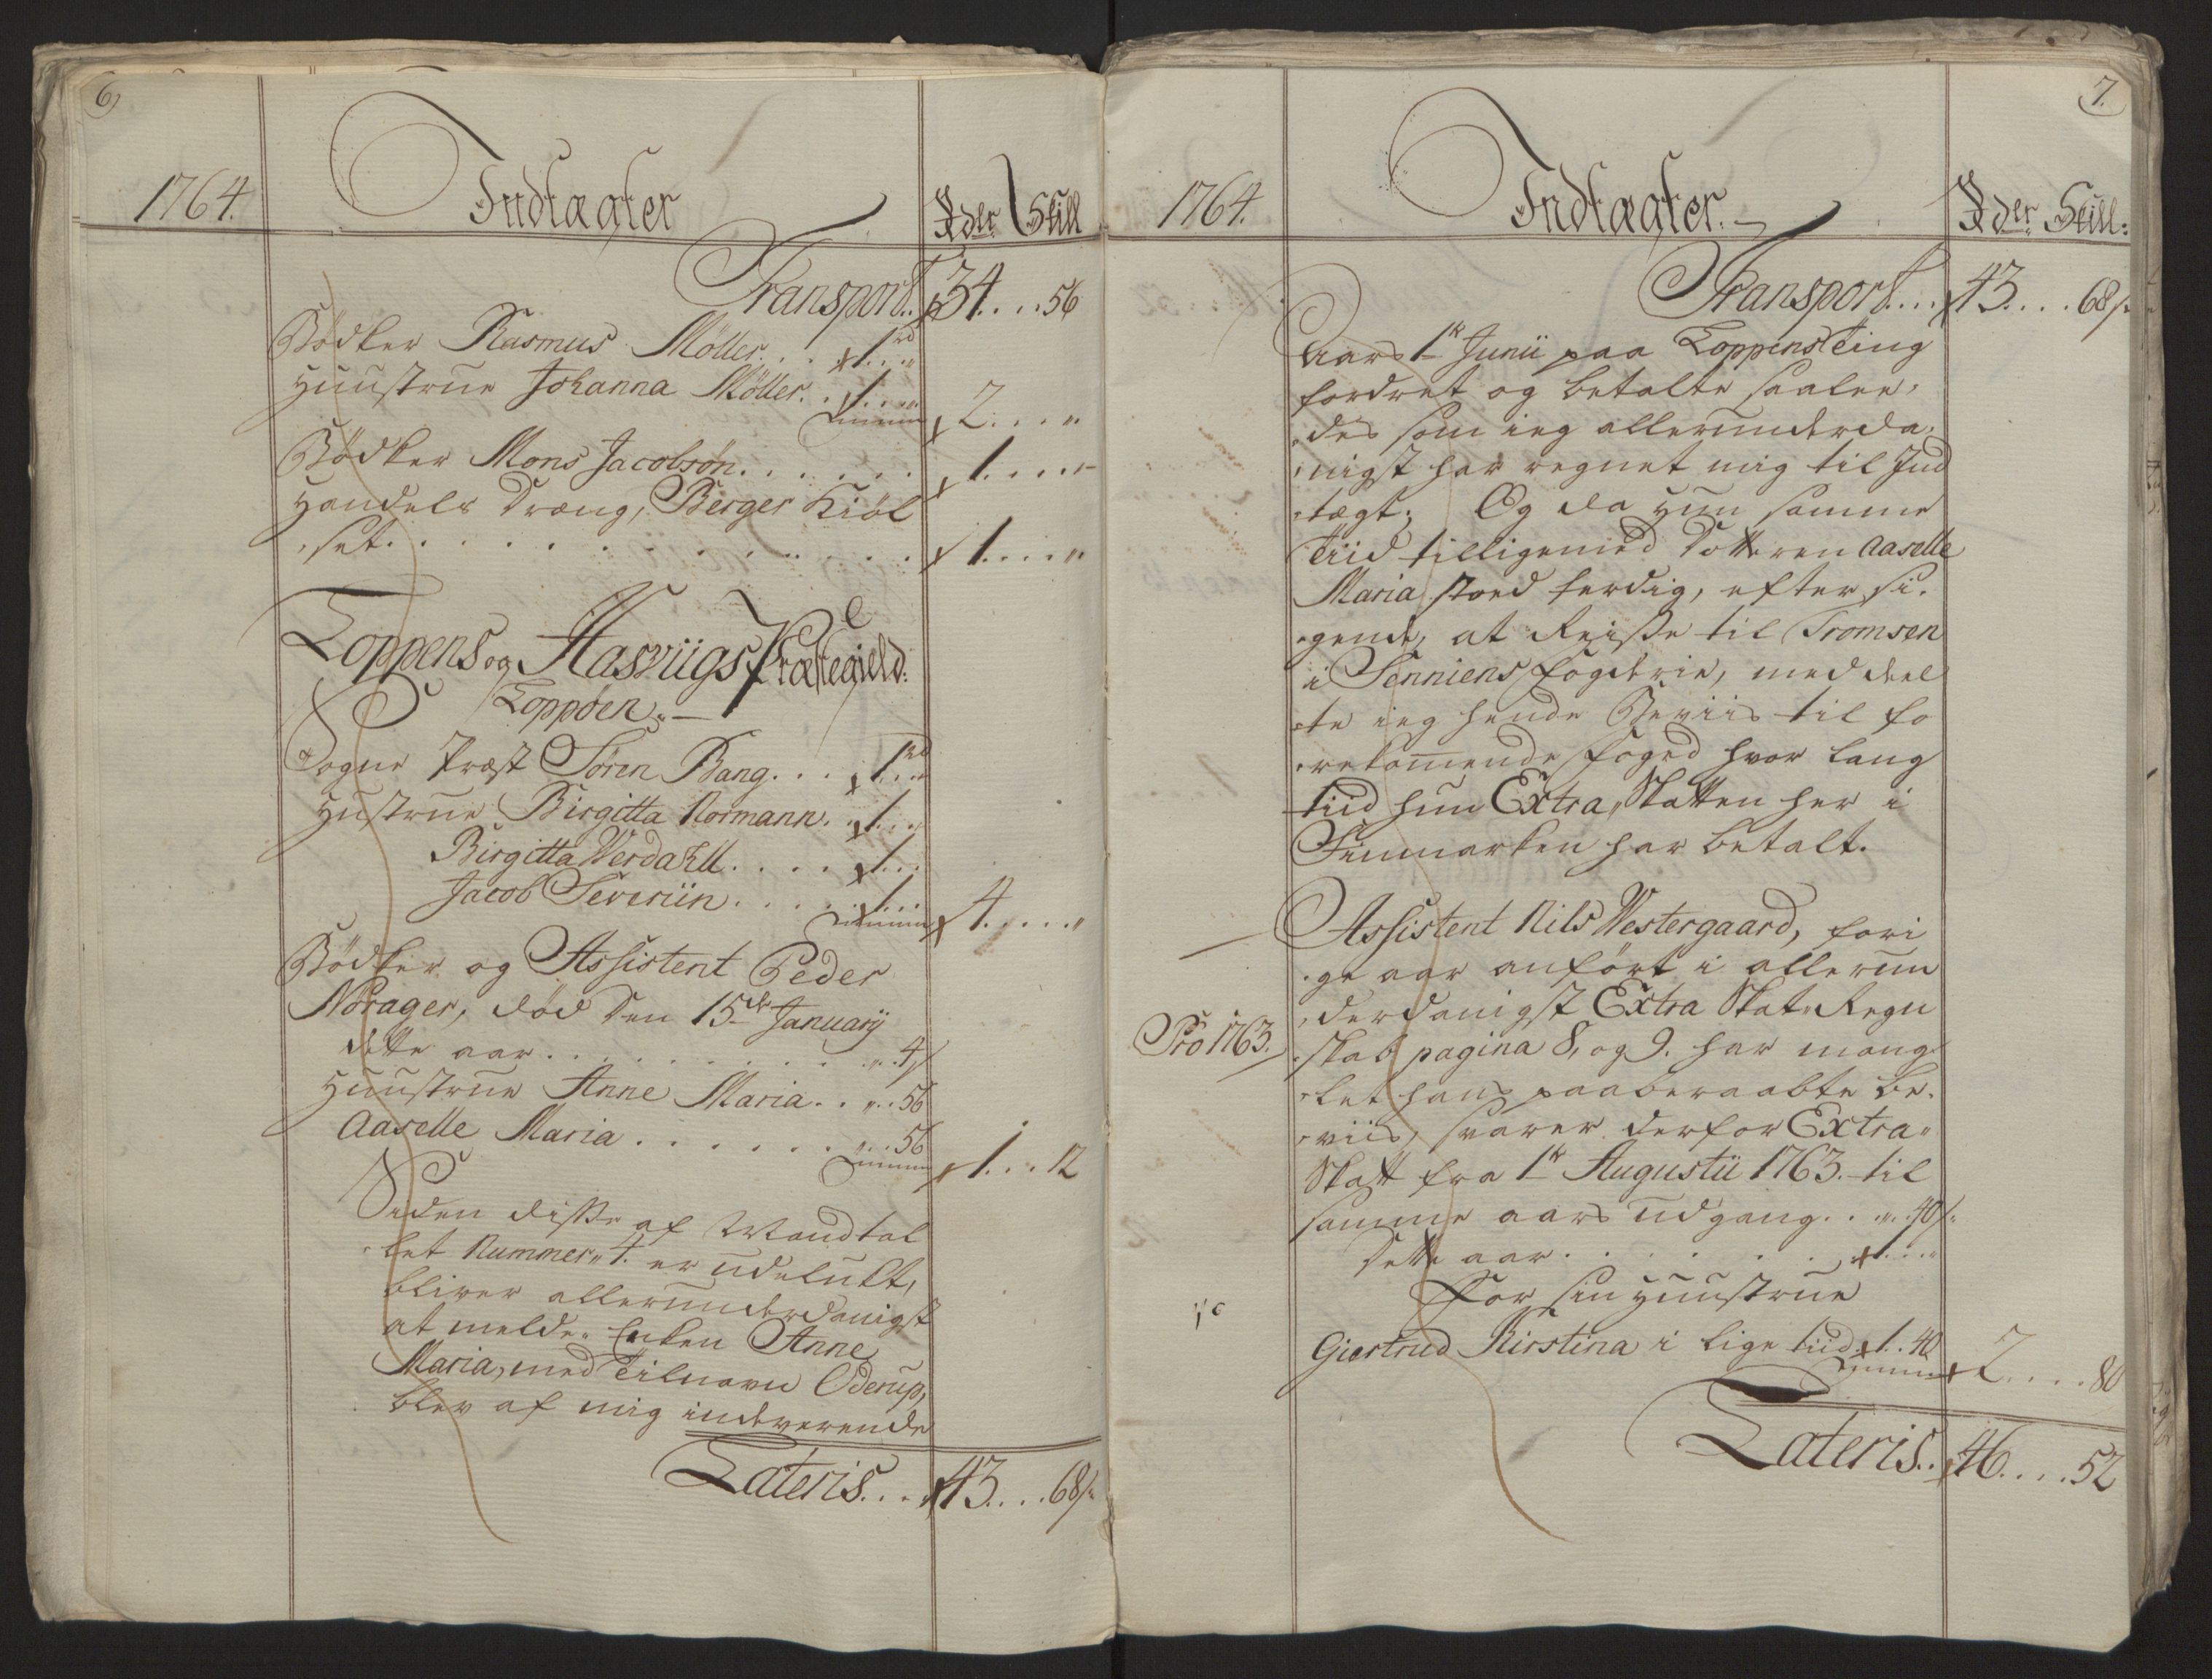 6)
1764.
Indtægter
Rdlr Skill
Transport.. 34....56
Bödker Rasmus Möller... 1rd..„
Huustrue Johanna Möller.. 1...„
2....„
Bödker Mons Jacobsøn....... 1....„
Handels Dreng, Berger Kiöl
„set................ 1....„
Loppens og Hasviigs Præstegield:
Loppøen.
Sogne Præst Sören Bang... 1rd..
Hustrue Birgitta Normann.. 1...
Birgitta Werdahll..... 1...
Jacob Severiin..... 1...
4.....„
Bödker og Assistent Peder
Nörager, død den 15de January
dette aar............ „..4/
Huustrue Anne Maria.. „..56
Aaselle Maria....... „...56
1...12
Siden disse af Mandtal
let Nummer„ 4. er udelukt,
bliver allerunderdanigst
at melde. Enken Anne
Maria, med Tilnavn Oderup,
blev af mig indeverende
Lateris... 43....68/:
7.
1764.
Indtægter.
Rdlr Skill:
Transport... 43....68/:
Aars 1te Junii paa Loppens Ting
fordret og betalte saalee„
„des som ieg allerunderda„
„nigst har regnet mig til Ind
„tægt; Og da hun samme
Tiid tilligemed Dotteren Aaselle
Maria stoed ferdig, efter si„
„gende, at Reisse til Tromsen
i Senniens fogderie, meddeel
„te ieg hende Beviis til fo
„rekommende foged hvor lang
tiid hun Extra„ Skatten her i
Finmarken har betalt.
Assistent Nils Westergaard, fori
„ge aar anfört i allerun
„derdanigst Extra Skat„ Regn
Pro 1763.
„skab pagina 8, og 9. har mang
„let hans paaberaabte be„
„viis, svarer derfor Extra„
Skatt fra 1te Augustii 1763. til
samme aars udgang.. „..40/:
dette aar...... 1...„
For sin Huustrue
Giertrud Kirstina i lige tiid. 1..40
2....80
Lateris.. 46....52